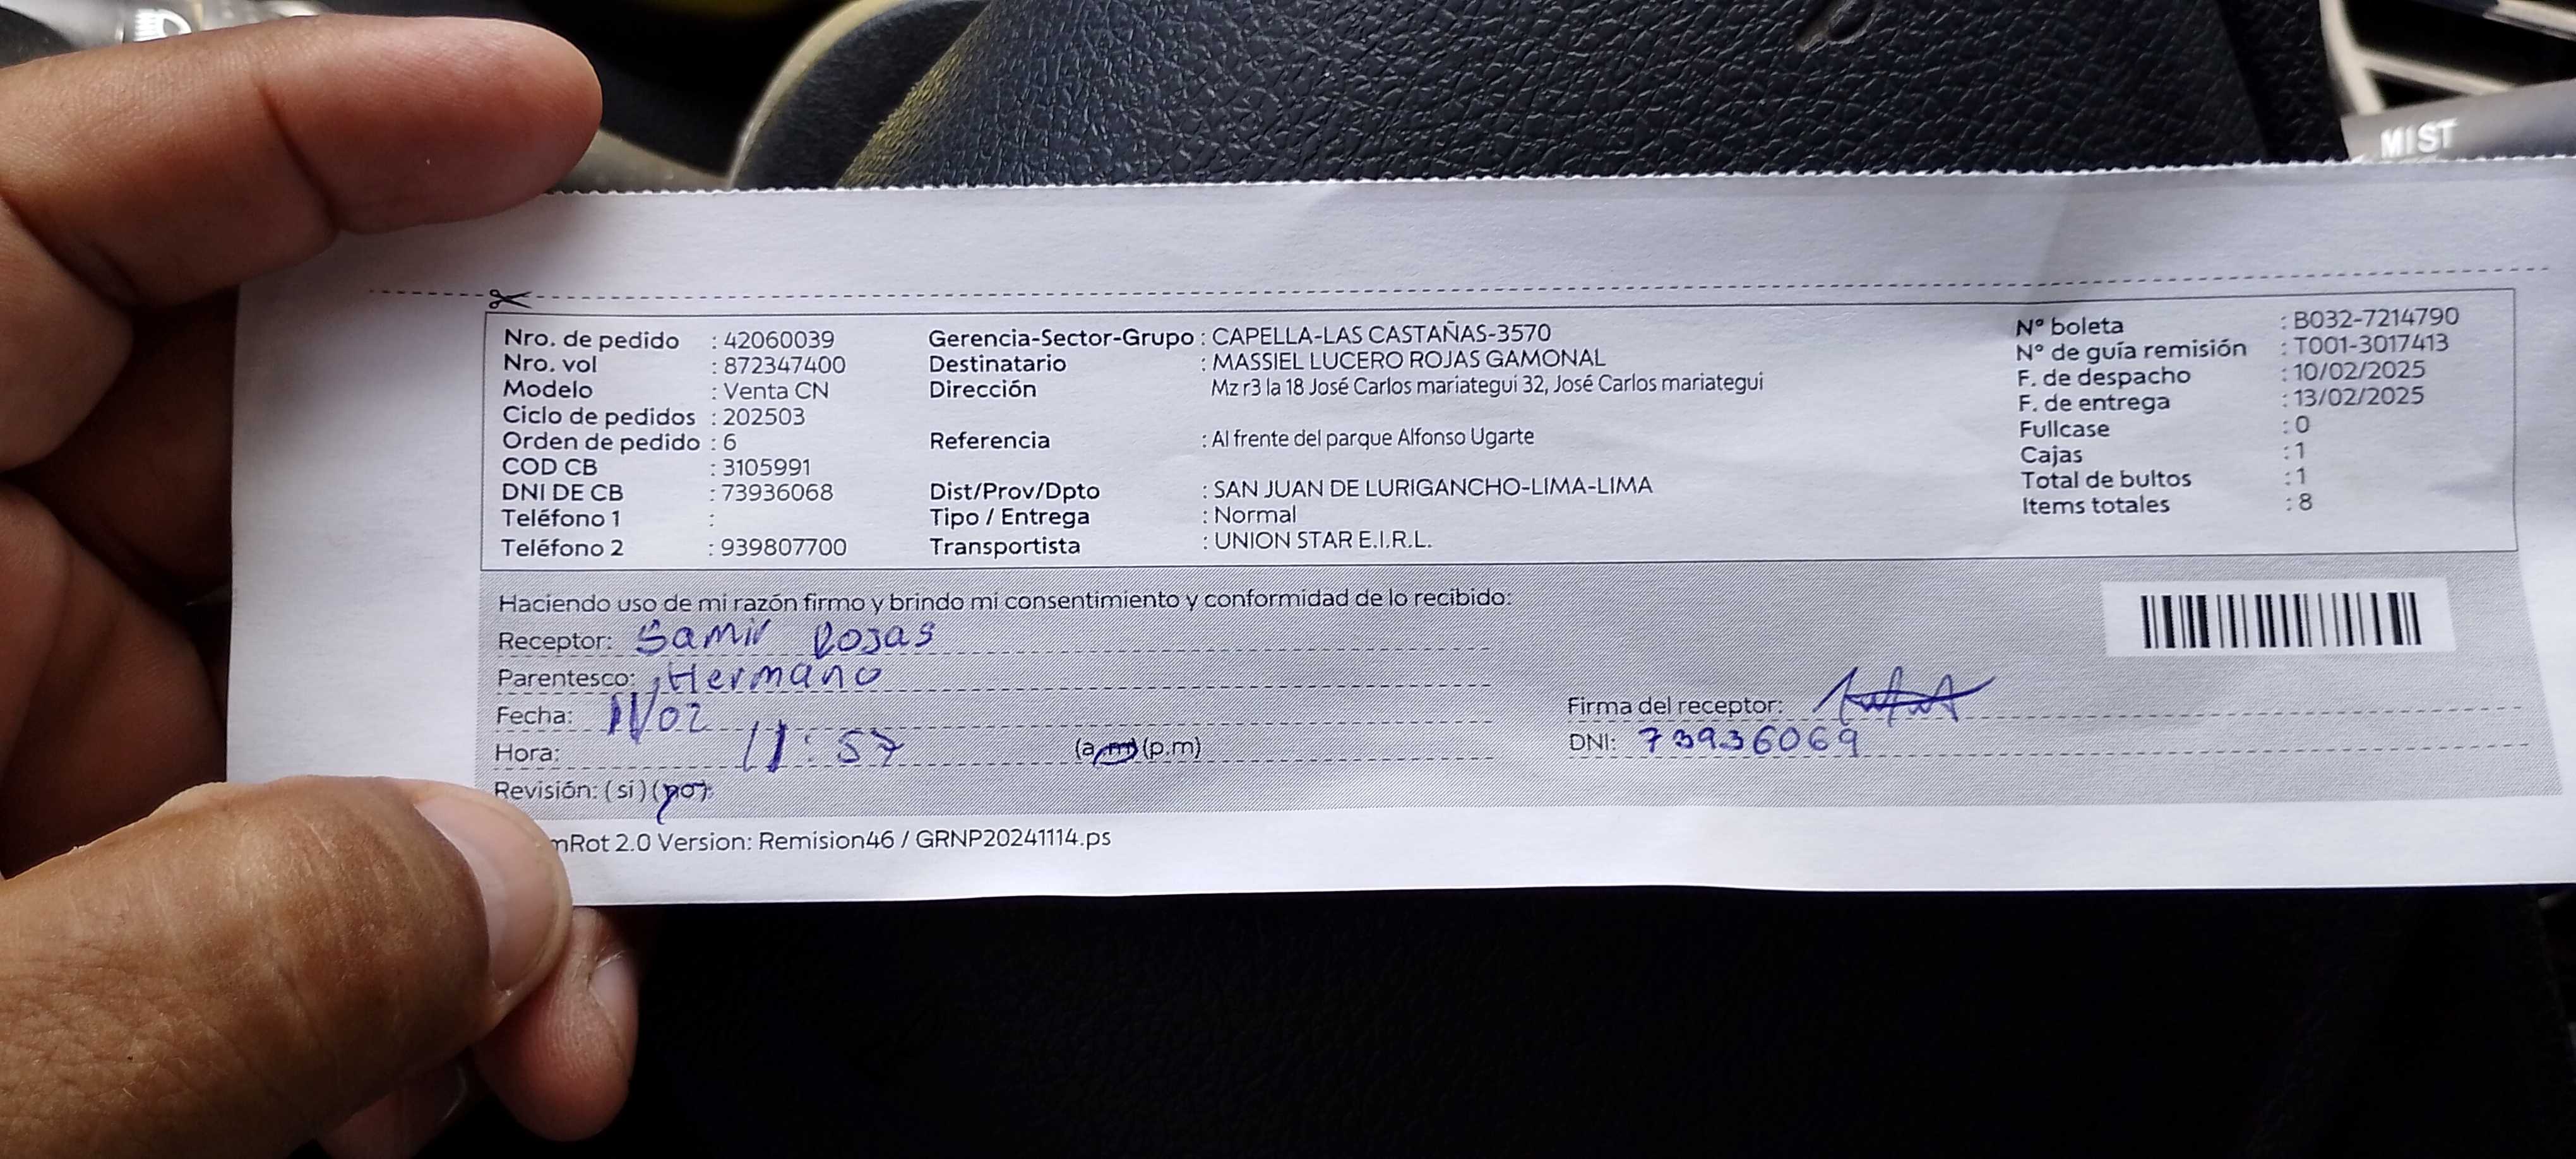 MIST
Nro. de pedido : 42060039
Nro. vol : 872347400
Modelo : Venta CN
Ciclo de pedidos : 202503
Orden de pedido : 6
COD CB : 3105991
DNI DE CB : 73936068
Teléfono 1 :
Teléfono 2 : 939807700
Gerencia-Sector-Grupo : CAPELLA-LAS CASTAÑAS-3570
Destinatario : MASSIEL LUCERO ROJAS GAMONAL
Dirección Mz r3 la 18 José Carlos mariategui 32, José Carlos mariategui
Referencia : Al frente del parque Alfonso Ugarte
Dist/Prov/Dpto : SAN JUAN DE LURIGANCHO-LIMA-LIMA
Tipo / Entrega : Normal
Transportista : UNION STAR E.I.R.L.
N° boleta : B032-7214790
N° de guía remisión : T001-3017413
F. de despacho : 10/02/2025
F. de entrega : 13/02/2025
Fullcase : 0
Cajas : 1
Total de bultos : 1
Items totales : 8
Haciendo uso de mi razón firmo y brindo mi consentimiento y conformidad de lo recibido:
Receptor: Samir Rojas
Parentesco: Hermano
Fecha: 11/02
Hora: 11:57 (a.m) (p.m)
Revisión: (si) (no):
Firma del receptor:
DNI: 73936069
mRot 2.0 Version: Remision46 / GRNP20241114.ps